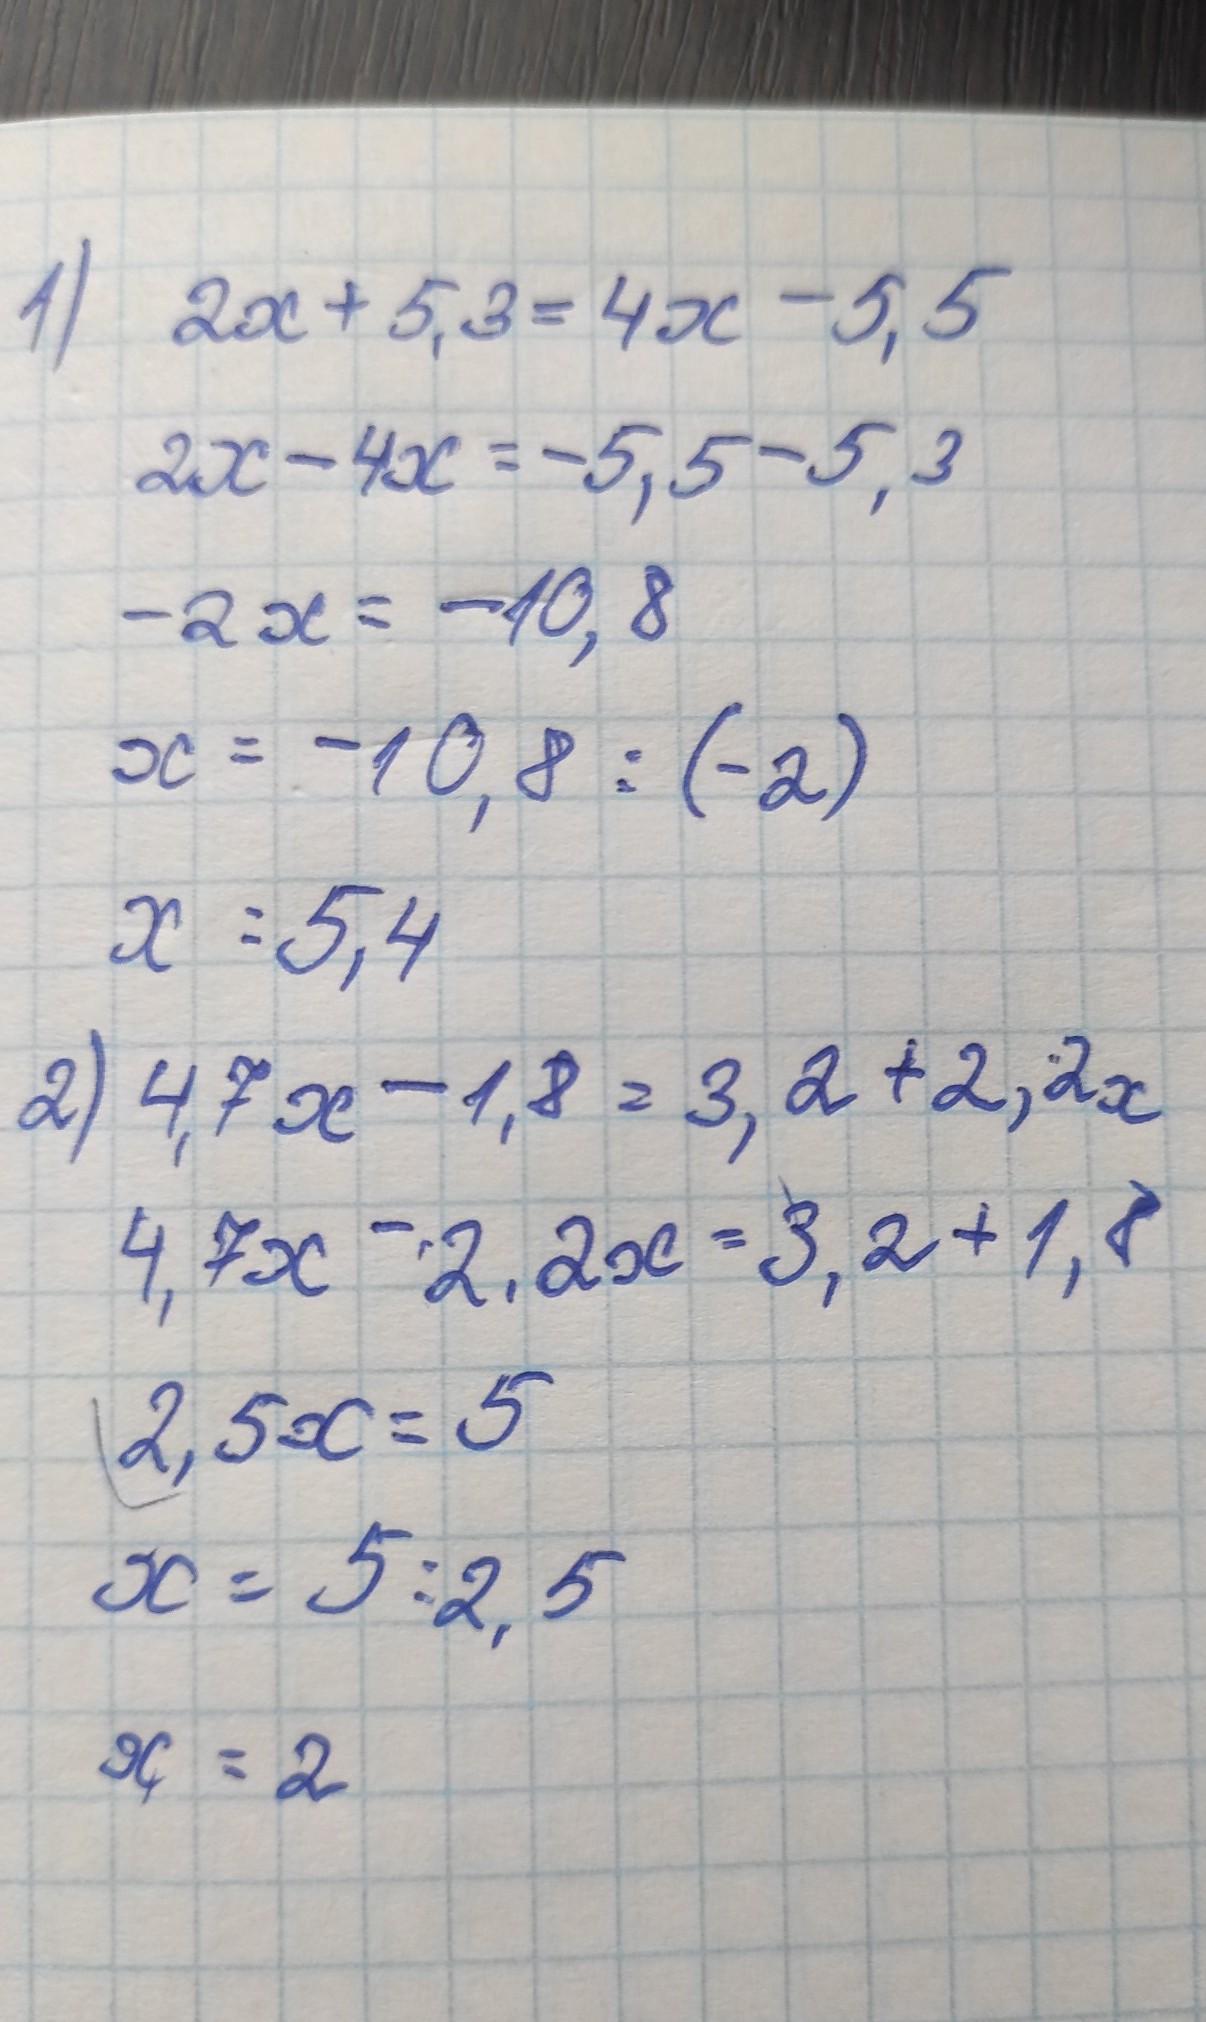 1) 2x + 5,3 = 4x - 5,5
2x - 4x = -5,5 - 5,3
-2x = -10,8
x = -10,8 : (-2)
x = 5,4
2) 4,7x - 1,8 = 3,2 + 2,2x
4,7x - 2,2x = 3,2 + 1,8
2,5x = 5
x = 5 : 2,5
x = 2